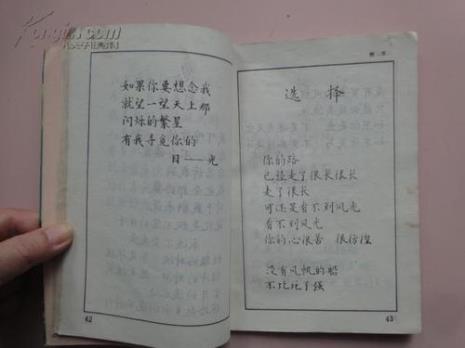 如果你要想念我
就望一望天上那
闪烁的繁星
有我寻觅你的
目——光
42
选择
你的路
已经走了很长很长
走了很长
可还是看不到风光
看不到风光
你的心很苦 很彷徨
没有风帆的船
不比死了强
43